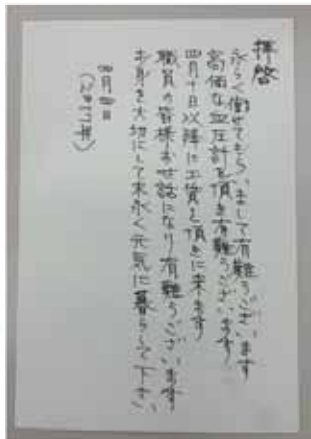 拝啓
永らく働せてもらいまして有難うございます
高価な血圧計を頂き有難うございます
四月十日以降に工賃を頂きに来ます
職員の皆様お世話になり有難うございます
お身を大切にして末永く元気に暮らして下さい、
四月四日